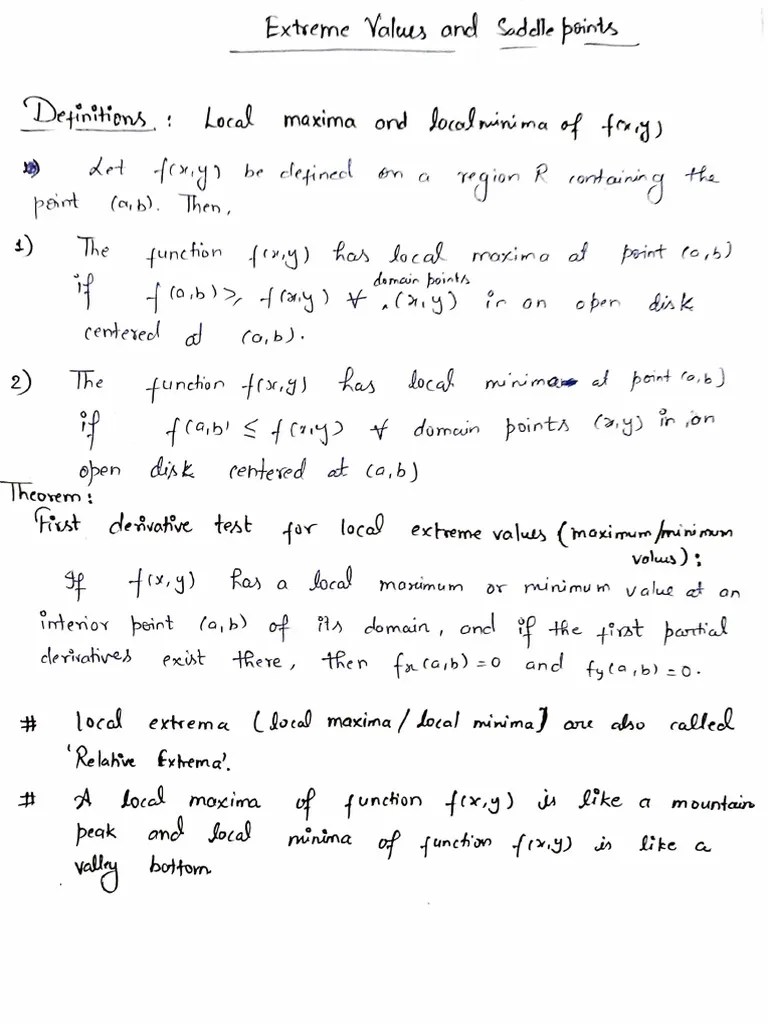 Extreme Values and Saddle points
Definitions : Local maxima and local minima of f(x,y)
Let f(x,y) be defined on a region R containing the
point (a,b). Then,
1) The function f(x,y) has local maxima at point (a,b)
if f(a,b) ≥ f(x,y) ∀ domain points (x,y) in an open disk
centered at (a,b).
2) The function f(x,y) has local minima at point (a,b)
if f(a,b) ≤ f(x,y) ∀ domain points (x,y) in an
open disk centered at (a,b)
Theorem :
First derivative test for local extreme values (maximum/minimum
values) :
If f(x,y) has a local maximum or minimum value at an
interior point (a,b) of its domain, and if the first partial
derivatives exist there, then fx(a,b)=0 and fy(a,b)=0.
# local extrema (local maxima / local minima) are also called
'Relative Extrema'.
# A local maxima of function f(x,y) is like a mountain
peak and local minima of function f(x,y) is like a
valley bottom